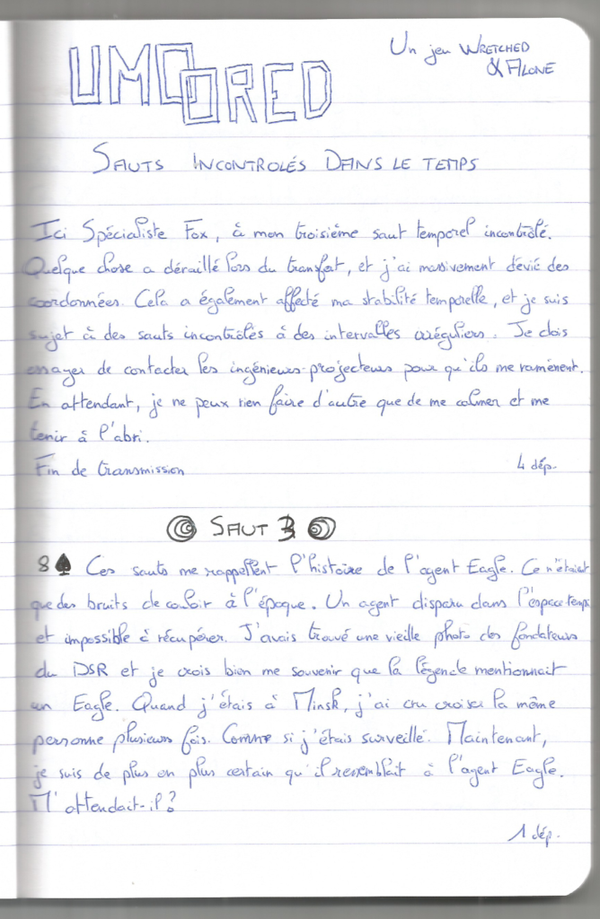 UMOORED
Un jeu WRETCHED
& ALONE
SAUTS INCONTROLÉS DANS LE TEMPS
Ici Spécialiste Fox, à mon troisième saut temporel incontrôlé.
Quelque chose a déraillé lors du transfert, et j'ai massivement dévié des
coordonnées. Cela a également affecté ma stabilité temporelle, et je suis
sujet à des sauts incontrôlés à des intervalles irréguliers. Je dois
essayer de contacter les ingénieurs-projecteurs pour qu'ils me ramènent.
En attendant, je ne peux rien faire d'autre que de me calmer et me
tenir à l'abri.
Fin de transmission
4 dép.
SAUT 3
8♠ Ces sauts me rappellent l'histoire de l'agent Eagle. Ce n'était
que des bruits de couloir à l'époque. Un agent disparu dans l'espace temps
et impossible à récupérer. J'avais trouvé une vieille photo des fondateurs
du DSR et je crois bien me souvenir que la légende mentionnait
un Eagle. Quand j'étais à Minsk, j'ai cru croiser la même
personne plusieurs fois. Comme si j'étais surveillé. Maintenant,
je suis de plus en plus certain qu'il ressemblait à l'agent Eagle.
M'attendait-il ?
1 dép.